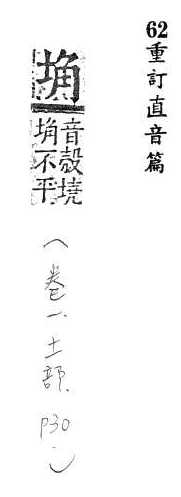 62重訂直音篇
埆
音殼墝
埆不平
(卷一.土部.p30.)